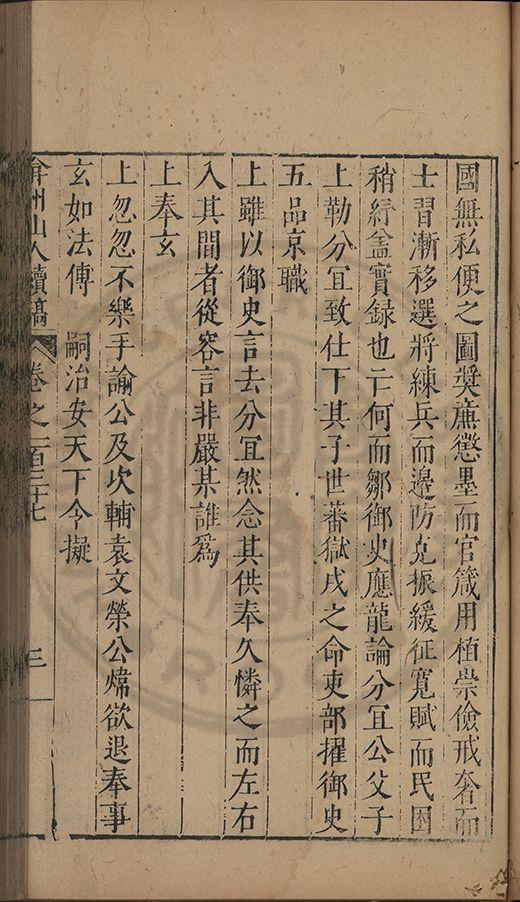 國無私便之圖奬廉懲墨而官箴用植崇儉戒奢而
士習漸移選將練兵而邊防克振緩征寛賦而民困
稍紓葢實録也亡何而鄒御史應龍論分宜公父子
上勒分宜致仕下其子世蕃獄戍之命吏部擢御史
五品京職
上雖以御史言去分宜然念其供奉久憐之而左右
入其間者從容言非嚴某誰爲
上奉玄
上忽忽不樂手諭公及次輔袁文榮公煒欲退奉事
玄如法傳　嗣治安天下令擬
弇州山人續稿　卷之一百三十七　三